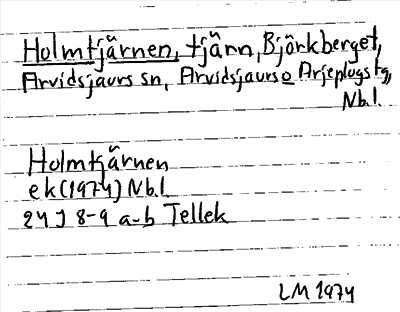 Holmtjärnen, tjärn, Björkberget,
Arvidsjaurs sn, Arvidsjaurs o Arjeplogs tg,
Nb.l.
Holmtjärnen
ek (1974) Nb.l.
24 J 8-9 a-b Tellek
LM 1974